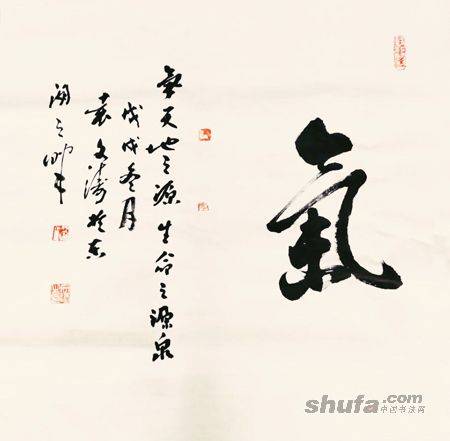 氣
天地之源 生命之源泉
戊戌冬月
袁文涛於东
湖之畔
shufa.com
中国书法网